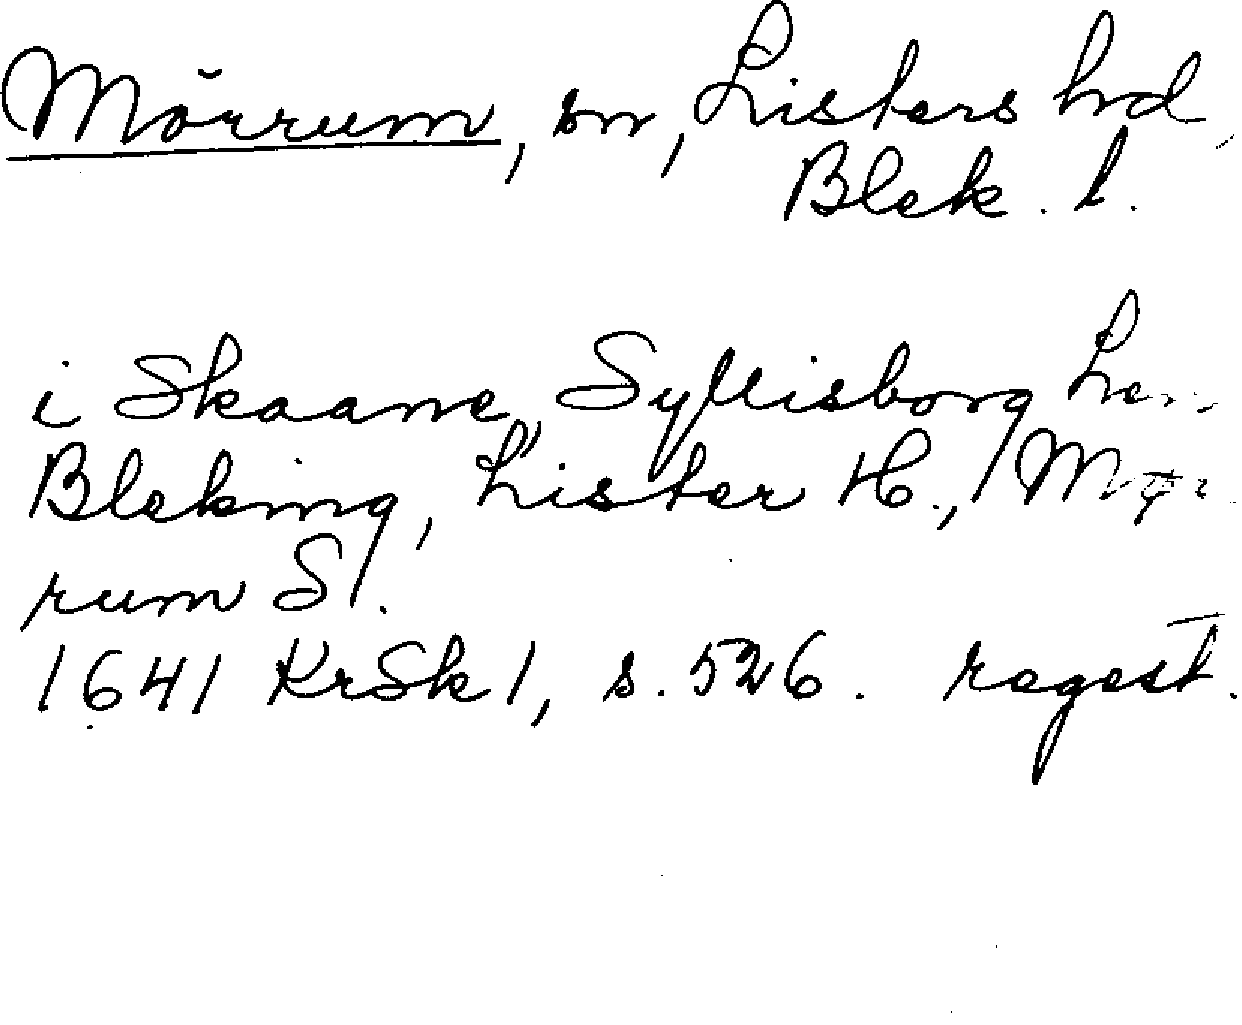 Mörrum, sn, Listers hd,
Blek. l.
i Skaane, Syllisborg Len
Bleking, Lister H., Mør
rum S.
1641 KrSk 1, s. 526. regest.